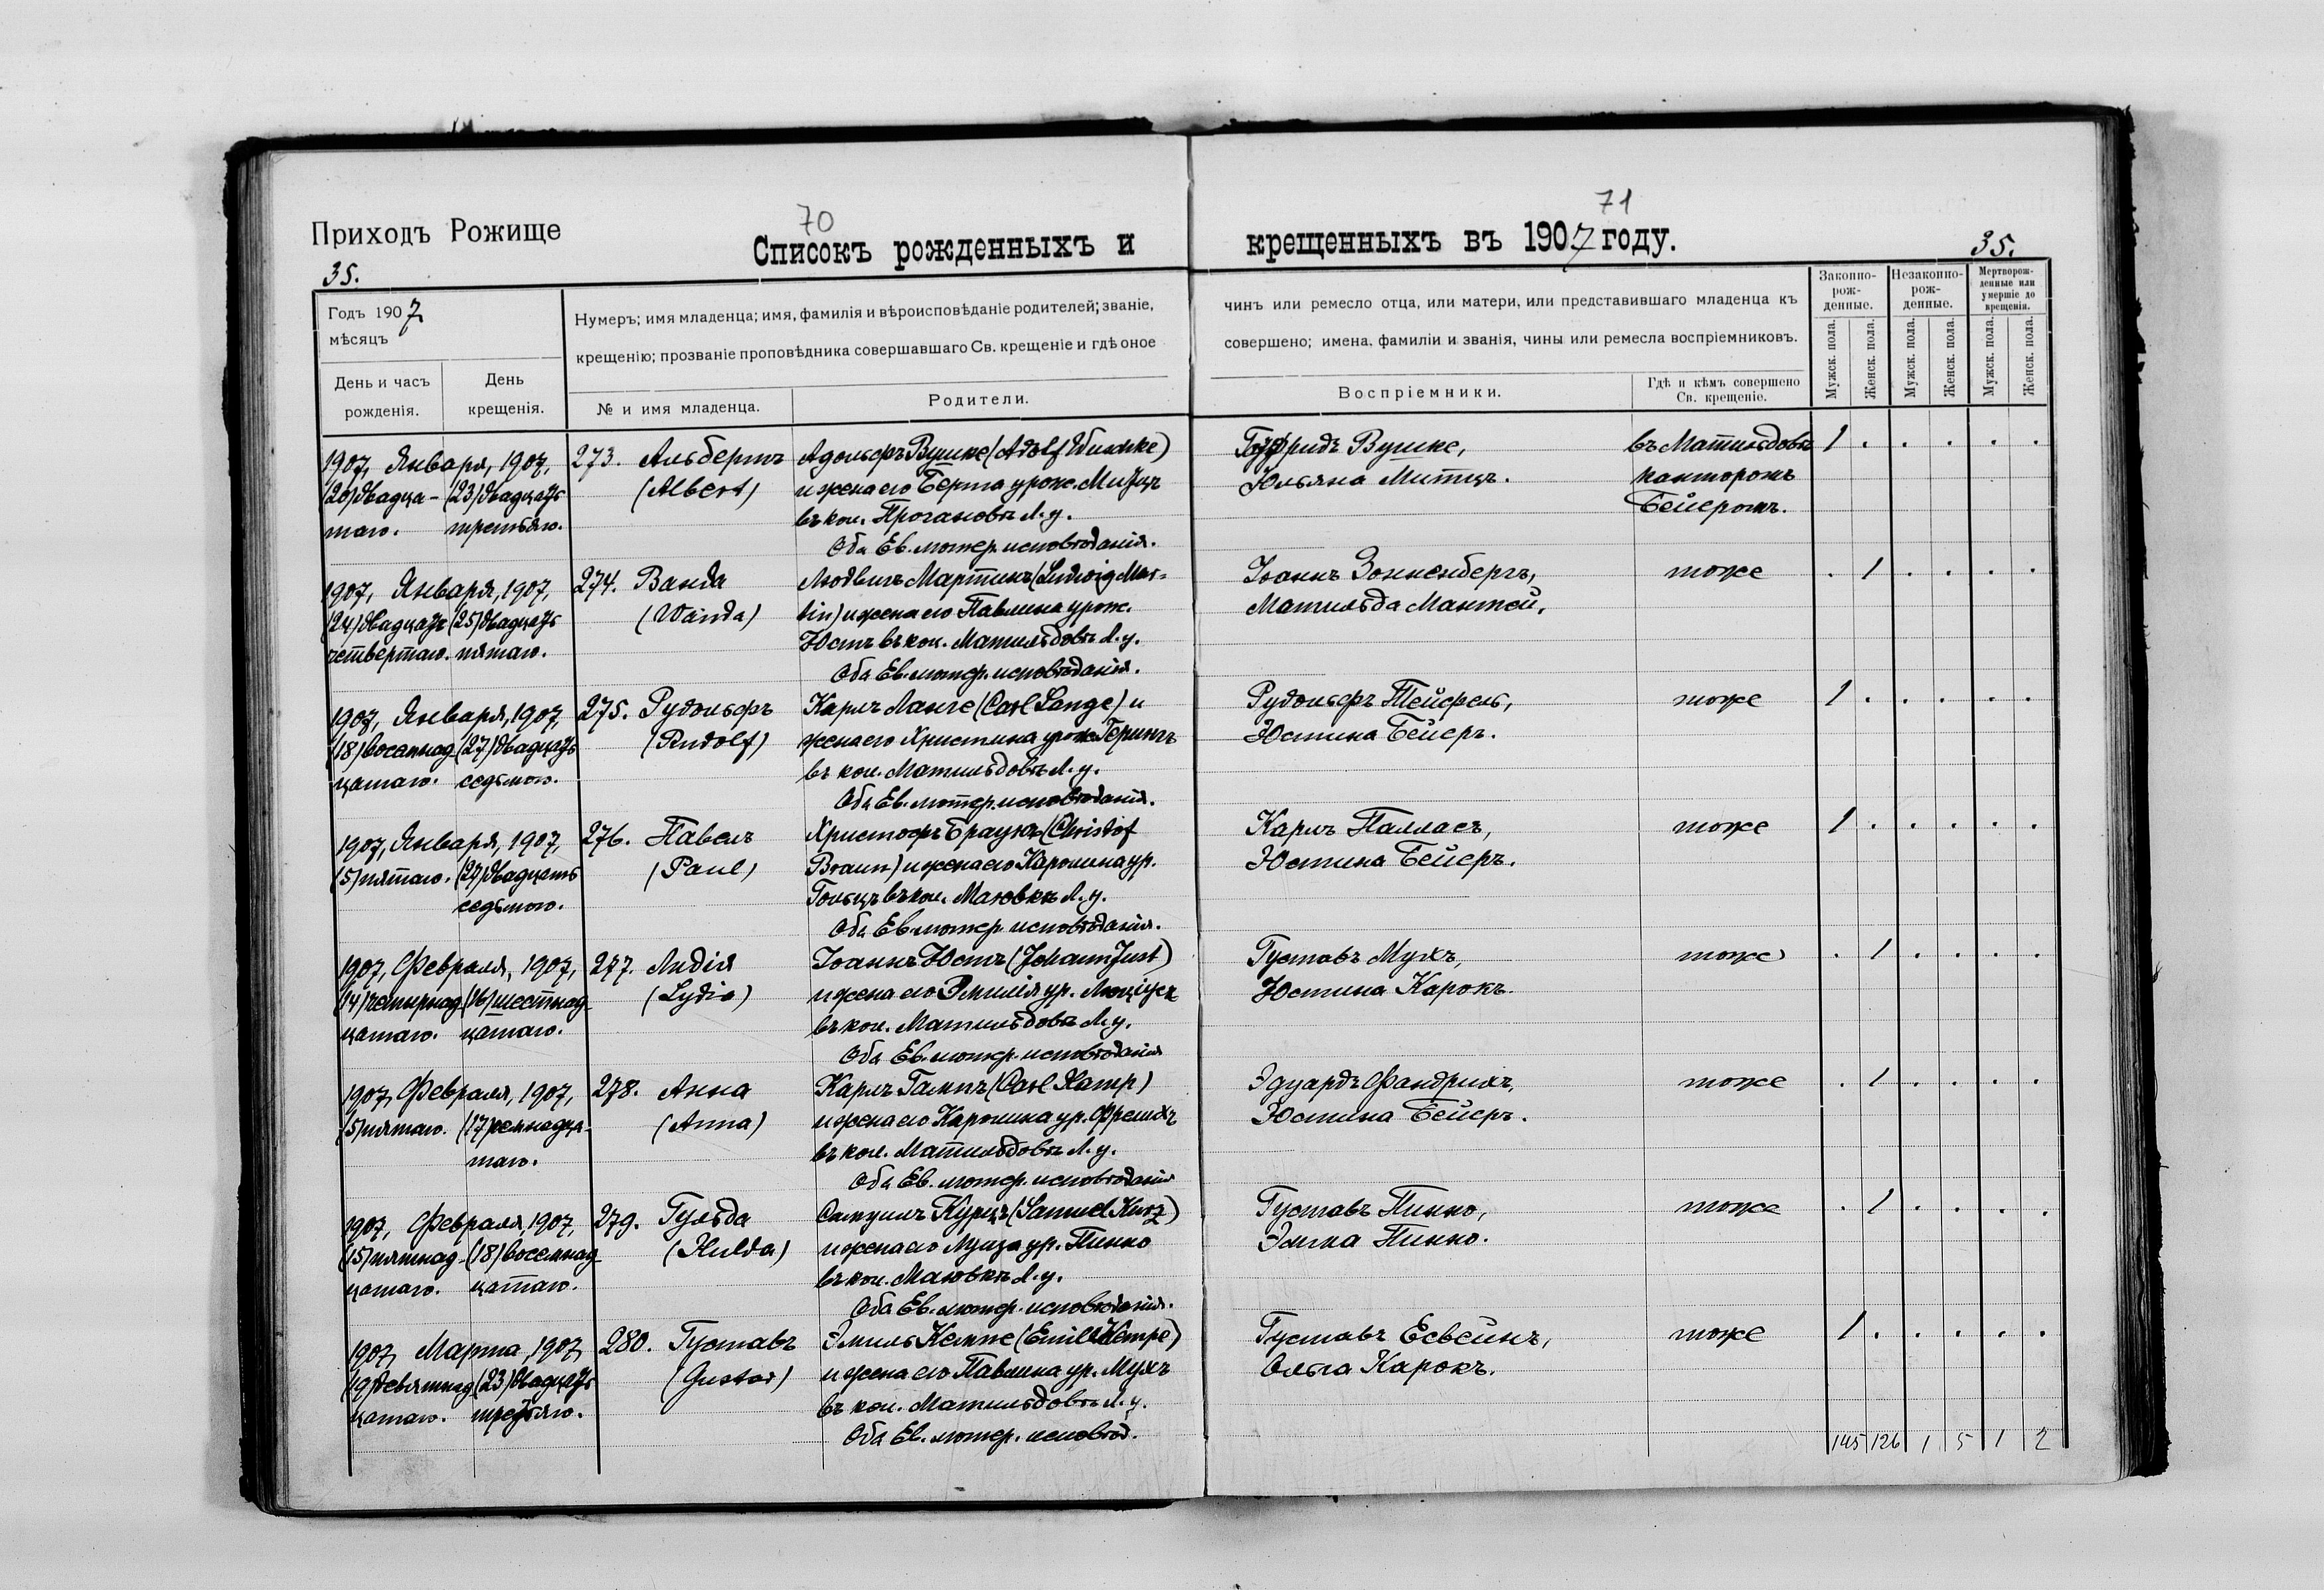 70
71
Приходъ Рожище
Списокъ рожденныхъ и
крещенныхъ въ 1907 году.
35.
35.
Годъ 1907
мѣсяцъ
Нумеръ; имя младенца; имя, фамилія и вѣроисповѣданіе родителей; званіе,
крещенію; прозваніе проповѣдника совершавшаго Св. крещеніе и гдѣ оное
чинъ или ремесло отца, или матери, или представившаго младенца къ
совершено; имена, фамиліи и званія, чины или ремесла воспріемниковъ.
Законно-
рож-
денные.
Незаконно-
рож-
денные.
Мертворож-
денные или
умершіе до
крещенія.
День и часъ
рожденія.
День
крещенія.
№ и имя младенца.
Родители.
Воспріемники.
Гдѣ и кѣмъ совершено
Св. крещеніе.
Мужск. пола.
Женск. пола.
Мужск. пола.
Женск. пола.
Мужск. пола.
Женск. пола.
1907, Января, 1907, 273. Альбертъ Адольфъ Вушке (Adolf Wuschke) Гофридъ Вушке, въ Матильдовѣ 1 . . . . .
(20) двадца- (23) двадцать (Albert) и жена его Берта урож. Митцъ Юльяна Митцъ. канторомъ
таго. третьяго. въ кол. Прогановѣ Л. у. Бейеромъ.
Оба Ев. лютер. исповѣданія.
1907, Января, 1907, 274. Ванда Людвигъ Мартинъ (Ludwig Mar- Іоаннъ Зонненбергъ, тоже . 1 . . . .
(24) двадцать (25) двадцать (Wanda) tin) и жена его Павлина урож. Матильда Мантей,
четвертаго. пятаго. Юстъ въ кол. Матильдовѣ Л. у.
Оба Ев. лютер. исповѣданія.
1907, Января, 1907, 275. Рудольфъ Карлъ Ланге (Carl Lange) и Рудольфъ Тейфель, тоже 1 . . . . .
(18) восемнад- (27) двадцать (Rudolf) жена его Христина урож. Герингъ Юстина Бейеръ.
цатаго. седьмого. въ кол. Матильдовѣ Л. у.
Оба Ев. лютер. исповѣданія.
1907, Января, 1907, 276. Павелъ Христофъ Браунъ (Christof Карлъ Палласъ, тоже 1 . . . . .
(5) пятаго. (27) двадцать (Paul) Braun) и жена его Каролина ур. Юстина Бейеръ.
седьмого. Гольцъ въ кол. Маювкѣ Л. у.
Оба Ев. лютер. исповѣданія.
1907, Февраля, 1907, 277. Лидія Іоаннъ Юстъ (Johann Just) Густавъ Мухъ, тоже . 1 . . . .
(14) четырнад- (16) шестнад- (Lydia) и жена его Эмилія ур. Юстина Карокъ.
цатаго. цатаго. въ кол. Матильдовѣ Л. у.
Оба Ев. лютер. исповѣданія
1907, Февраля, 1907, 278. Анна Карлъ Гампъ (Carl Hamp) Эдуардъ Фандрихъ, тоже . 1 . . . .
(5) пятаго. (17) семнадца- (Anna) и жена его Каролина ур. Юстина Бейеръ.
таго. въ кол. Матильдовѣ Л. у.
Оба Ев. лютер. исповѣданія
1907, Февраля, 1907, 279. Гульда Самуилъ Курцъ (Samuel Kurz) Густавъ Пинно, тоже . 1 . . . .
(15) пятнад- (18) восемнад- (Hulda) и жена его Луиза ур. Пинно Элина Пинно.
цатаго. цатаго. въ кол. Маювкѣ Л. у.
Оба Ев. лютер. исповѣданія.
1907, Марта, 1907, 280. Густавъ Эмиль Кемпе (Emil Kempe) Густавъ Есвейнъ, тоже 1 . . . . .
(19) девятнад- (23) двадцать (Gustav) и жена его Павлина ур. Мухъ Ольга Карокъ.
цатаго. третьяго. въ кол. Матильдовѣ Л. у.
Оба Ев. лютер. исповѣд.
145 126 1 5 1 2